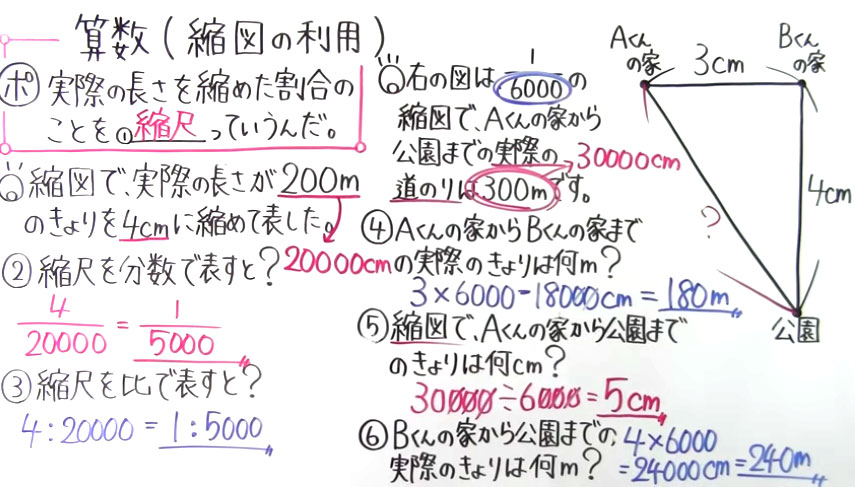 算数(縮図の利用)
ポ 実際の長さを縮めた割合の
ことを①縮尺っていうんだ。
縮図で、実際の長さが200m
のきょりを4cmに縮めて表した。
20000cm
②縮尺を分数で表すと?
4/20000 = 1/5000
③縮尺を比で表すと?
4:20000=1:5000
右の図は1/6000の
縮図で、Aくんの家から
公園までの実際の
30000cm
道のりは300mです。
④Aくんの家からBくんの家まで
の実際のきょりは何m?
3×6000=18000cm=180m
⑤縮図で、Aくんの家から公園まで
のきょりは何cm?
30000÷6000=5cm
⑥Bくんの家から公園までの
実際のきょりは何m?
4×6000
=24000cm=240m
Aくん
の家
3cm
Bくん
の家
4cm
?
公園